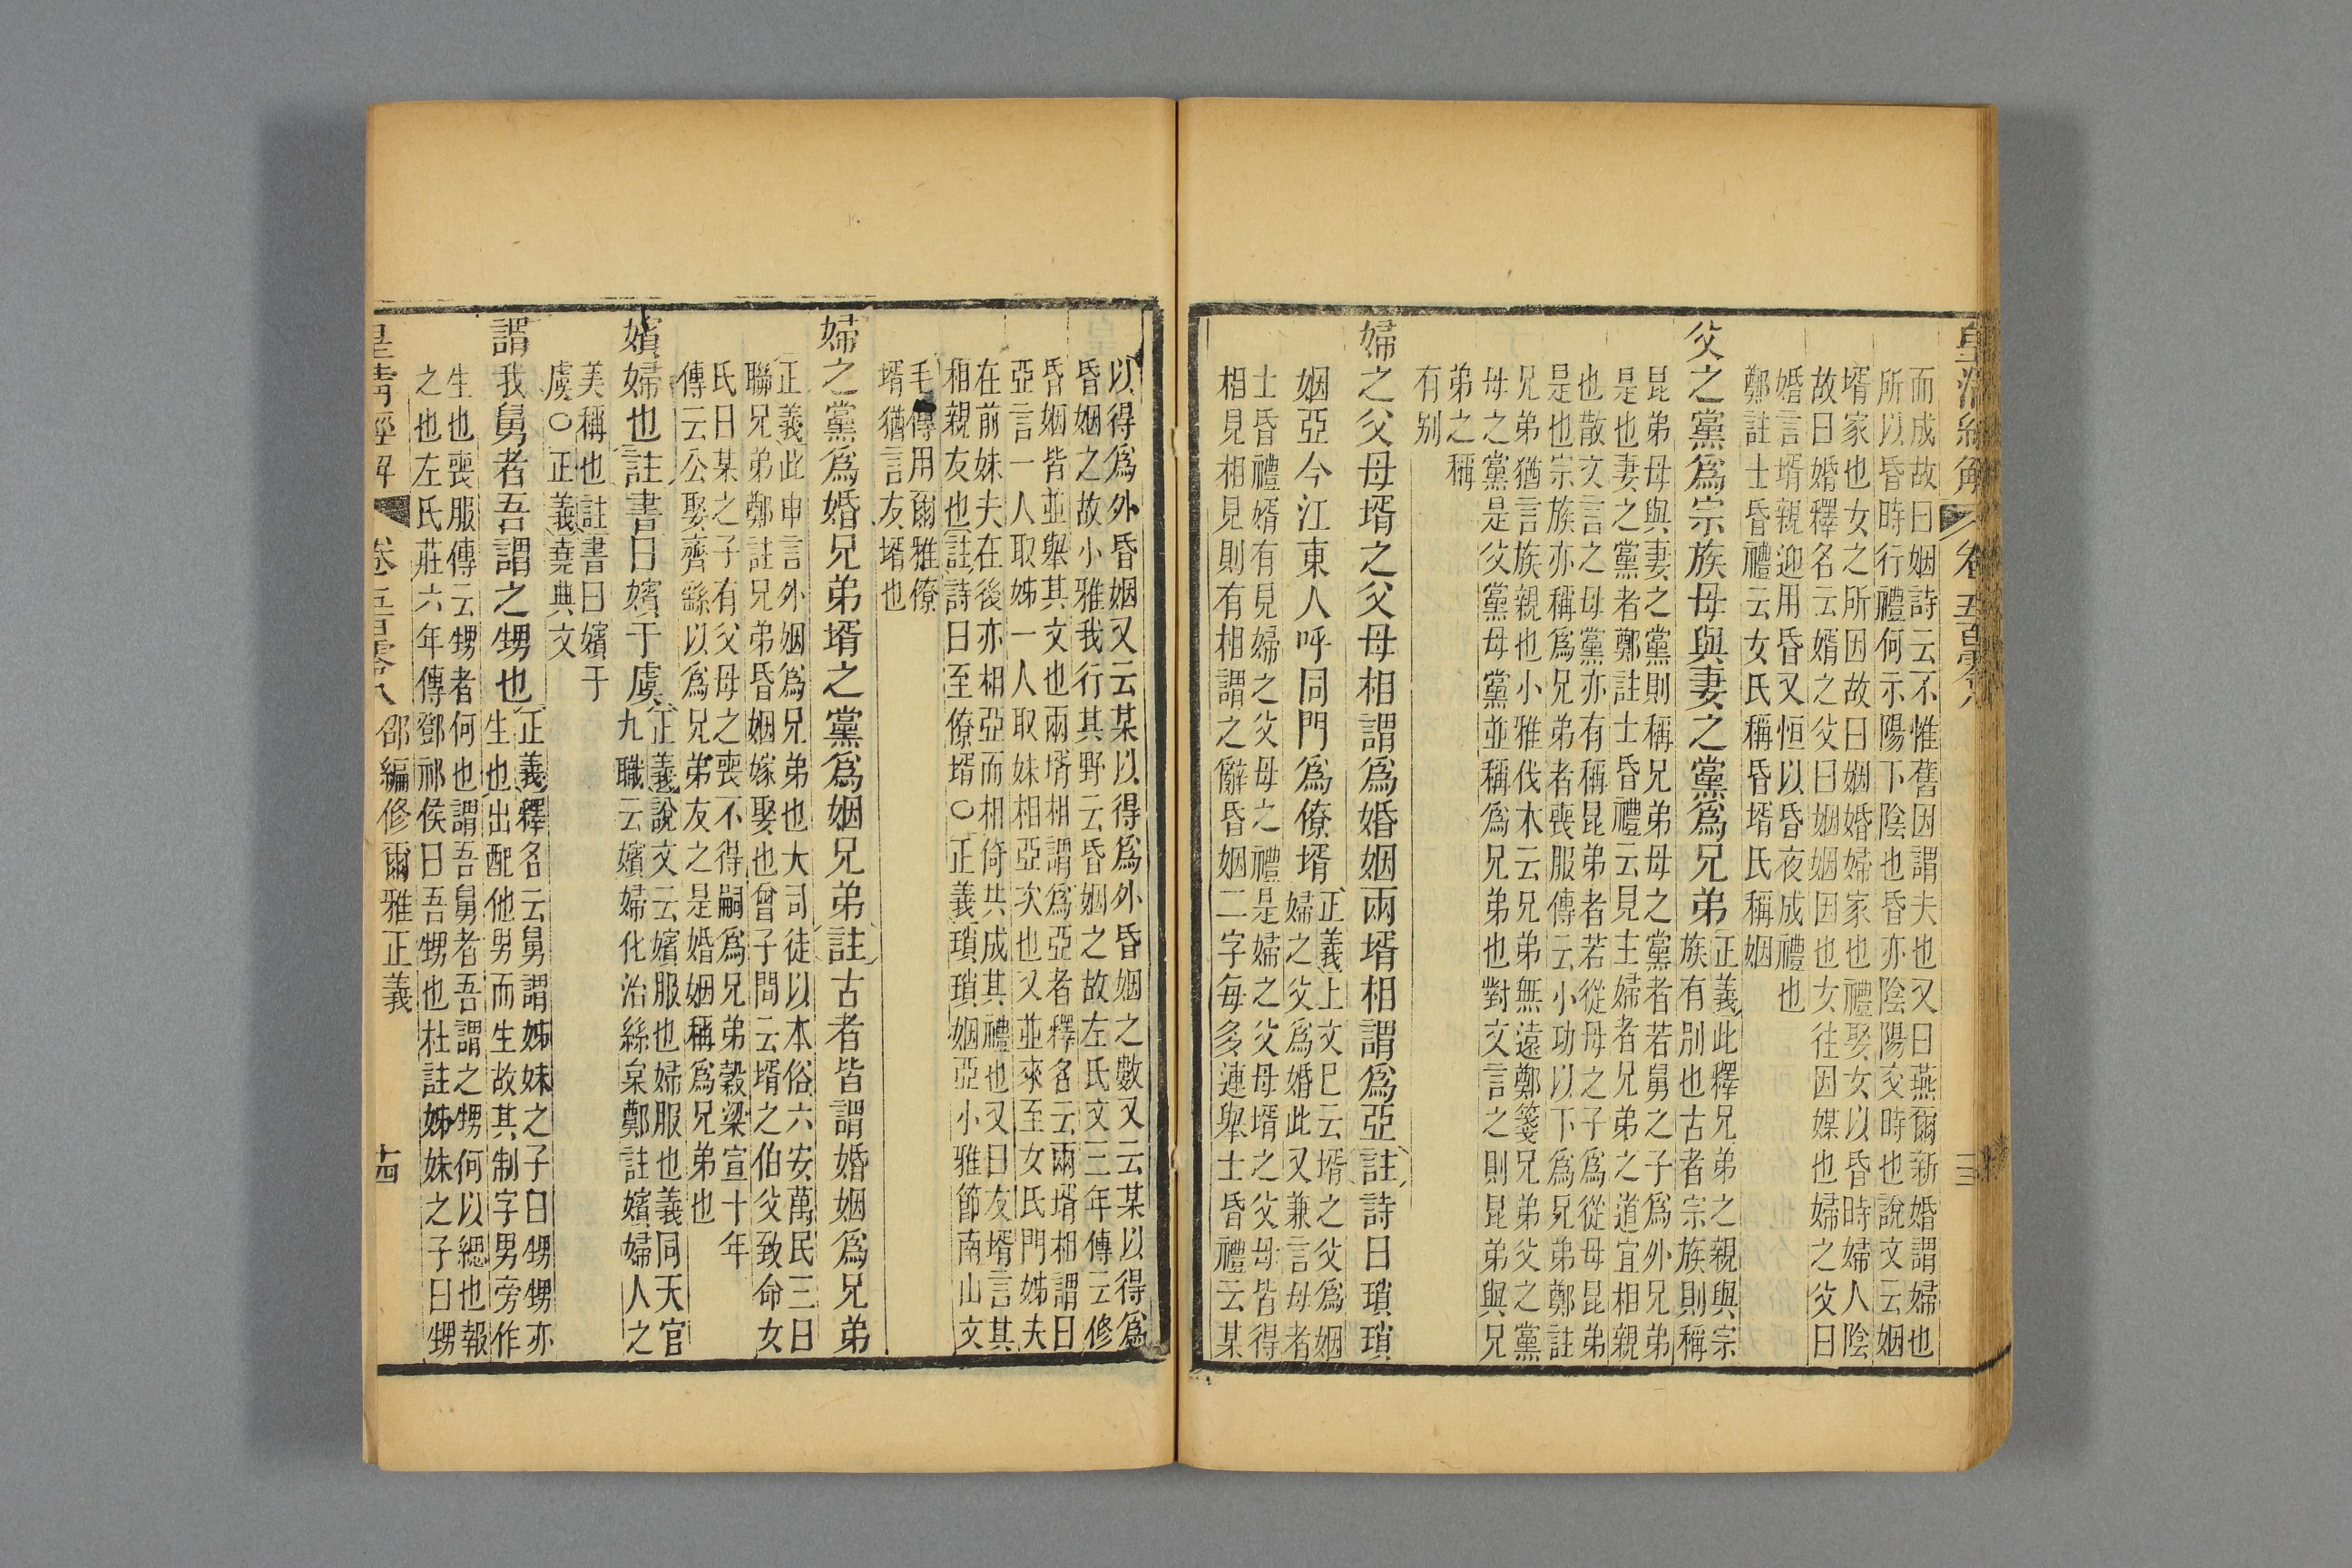 皇清經解 卷五百零八 十三
而成故曰姻詩云不惟舊因謂夫也又曰燕爾新婚謂婦也
所以昏時行禮何示陽下陰也昏亦陰陽交時也說文云姻
壻家也女之所因故曰姻婚婦家也禮娶女以昏時婦人陰
故曰婚釋名云婿之父曰姻姻因也女往因媒也婦之父曰
婚言壻親迎用昏又恒以昏夜成禮也
鄭註士昏禮云女氏稱昏壻氏稱姻
父之黨爲宗族母與妻之黨爲兄弟
正義此釋兄弟之親與宗
族有別也古者宗族則稱
昆弟母與妻之黨則稱兄弟母之黨者若舅之子爲外兄弟
是也妻之黨者鄭註士昏禮云見主婦者兄弟之道宜相親
也散文言之母黨亦有稱昆弟者若從母之子爲從母昆弟
是也宗族亦稱爲兄弟者喪服傳云小功以下爲兄弟鄭註
兄弟猶言族親也小雅伐木云兄弟無遠鄭箋兄弟父之黨
母之黨是父黨母黨並稱爲兄弟也對文言之則昆弟與兄
弟之稱
有別
婦之父母壻之父母相謂爲婚姻兩壻相謂爲亞註詩曰瑣瑣
姻亞今江東人呼同門爲僚壻
正義上文已云壻之父爲姻
婦之父爲婚此又兼言母者
士昏禮婿有見婦之父母之禮是婦之父母壻之父母皆得
相見相見則有相謂之辭昏姻二字每多連舉士昏禮云某
以得爲外昏姻又云某以得爲外昏姻之數又云某以得爲
昏姻之故小雅我行其野云昏姻之故左氏文二年傳云修
昏姻皆並舉其文也兩壻相謂爲亞者釋名云兩壻相謂曰
亞言一人取姊一人取妹相亞次也又並來至女氏門姊夫
在前妹夫在後亦相亞而相倚共成其禮也又曰友壻言其
相親友也註詩曰至僚壻○正義瑣瑣姻亞小雅節南山文
毛傳用爾雅僚
壻猶言友壻也
婦之黨爲婚兄弟壻之黨爲姻兄弟註古者皆謂婚姻爲兄弟
正義此申言外姻爲兄弟也大司徒以本俗六安萬民三曰
聯兄弟鄭註兄弟昏姻嫁娶也曾子問云壻之伯父致命女
氏曰某之子有父母之喪不得嗣爲兄弟穀梁宣十年
傳云公娶齊繇以爲兄弟友之是婚姻稱爲兄弟也
嬪婦也註書曰嬪于虞
正義說文云嬪服也婦服也義同天官
九職云嬪婦化治絲枲鄭註嬪婦人之
美稱也註書曰嬪于
虞○正義堯典文
謂我舅者吾謂之甥也
正義釋名云舅謂姊妹之子曰甥甥亦
生也出配他男而生故其制字男旁作
生也喪服傳云甥者何也謂吾舅者吾謂之甥何以緦也報
之也左氏莊六年傳鄧祁侯曰吾甥也杜註姊妹之子曰甥
皇清經解 卷五百零八 邵編修爾雅正義 十四